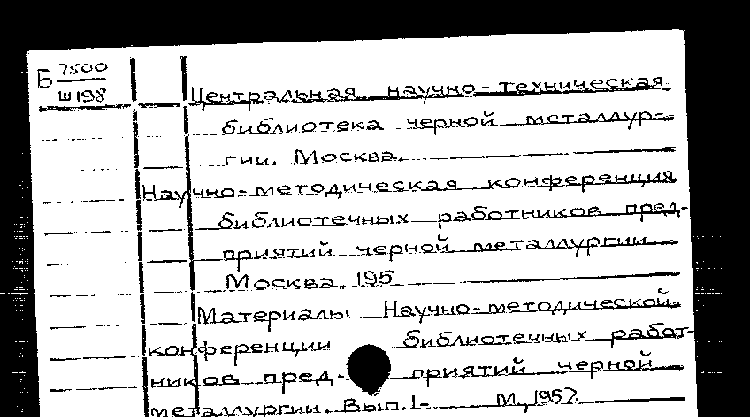 Б 7500
Ш198
Центральная научно-техническая
библиотека черной металлур-
гии. Москва.
Научно-методическая конференция
библиотечных работников пред-
приятий черной металлургии
Москва. 195
Материалы Научно-методической
конференции библиотечных работ-
ников пред- приятий черной
металлургии. Вып. 1- М., 1957.